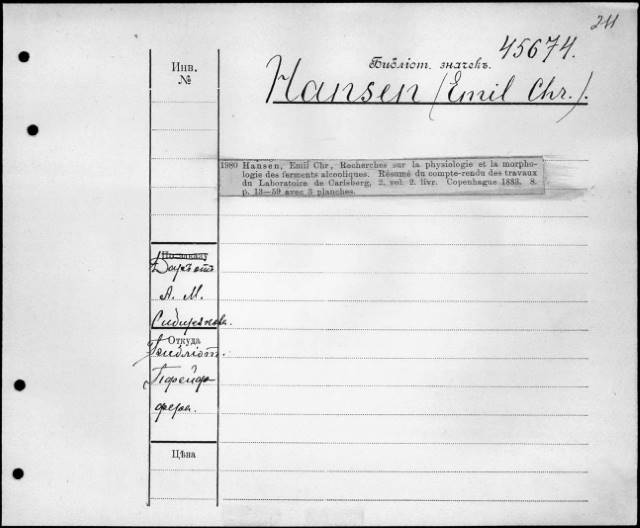 211
Библіот. значекъ.
45674.
Инв.
№
Hansen (Emil Chr.).
1980 Hansen, Emil Chr., Recherches sur la physiologie et la morpho-
logie des ferments alcooliques. Résumé du compte-rendu des travaux
du Laboratoire de Carlsberg, 2. vol. 2. livr. Copenhague 1883. 8.
p. 13—59 avec 3 planches.
А. М.
Сибирякова.
Откуда
Библіот.
Цѣна